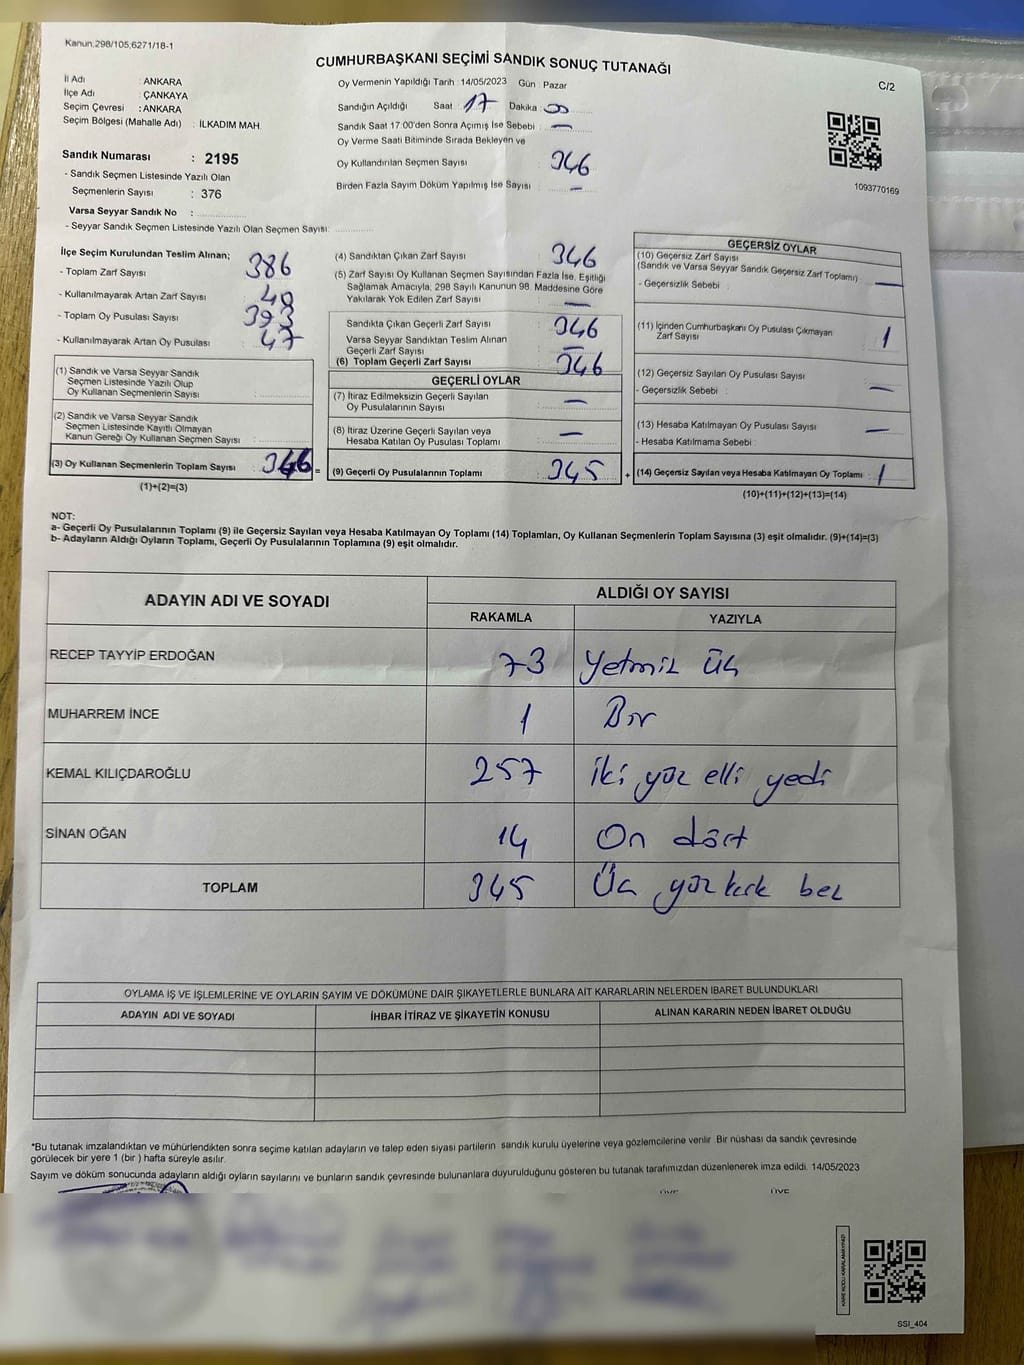 Kanun.298/105,6271/18-1
CUMHURBAŞKANI SEÇİMİ SANDIK SONUÇ TUTANAĞI
C/2
İl Adı : ANKARA
İlçe Adı : ÇANKAYA
Seçim Çevresi : ANKARA
Seçim Bölgesi (Mahalle Adı) : İLKADIM MAH.
Oy Vermenin Yapıldığı Tarih : 14/05/2023 Gün : Pazar
Sandığın Açıldığı Saat : 17 Dakika :
Sandık Saat 17:00'den Sonra Açımış İse Sebebi : —
Oy Verme Saati Bitiminde Sırada Bekleyen ve
Oy Kullandırılan Seçmen Sayısı : 346
Birden Fazla Sayım Döküm Yapılmış İse Sayısı : —
1093770169
Sandık Numarası : 2195
- Sandık Seçmen Listesinde Yazılı Olan
Seçmenlerin Sayısı : 376
Varsa Seyyar Sandık No :
- Seyyar Sandık Seçmen Listesinde Yazılı Olan Seçmen Sayısı:
İlçe Seçim Kurulundan Teslim Alınan;
- Toplam Zarf Sayısı : 386
- Kullanılmayarak Artan Zarf Sayısı : 40
- Toplam Oy Pusulası Sayısı : 393
- Kullanılmayarak Artan Oy Pusulası : 47
(1) Sandık ve Varsa Seyyar Sandık
Seçmen Listesinde Yazılı Olup
Oy Kullanan Seçmenlerin Sayısı :
(2) Sandık ve Varsa Seyyar Sandık
Seçmen Listesinde Kayıtlı Olmayan
Kanun Gereği Oy Kullanan Seçmen Sayısı :
(3) Oy Kullanan Seçmenlerin Toplam Sayısı : 346 =
(1)+(2)=(3)
(4) Sandıktan Çıkan Zarf Sayısı : 346
(5) Zarf Sayısı Oy Kullanan Seçmen Sayısından Fazla İse, Eşitliği
Sağlamak Amacıyla, 298 Sayılı Kanunun 98. Maddesine Göre
Yakılarak Yok Edilen Zarf Sayısı : —
Sandıkta Çıkan Geçerli Zarf Sayısı : 346
Varsa Seyyar Sandıktan Teslim Alınan
Geçerli Zarf Sayısı : —
(6) Toplam Geçerli Zarf Sayısı : 346
GEÇERLİ OYLAR
(7) İtiraz Edilmeksizin Geçerli Sayılan
Oy Pusulalarının Sayısı : —
(8) İtiraz Üzerine Geçerli Sayılan veya
Hesaba Katılan Oy Pusulası Toplamı : —
(9) Geçerli Oy Pusulalarının Toplamı : 345 +
GEÇERSİZ OYLAR
(10) Geçersiz Zarf Sayısı
(Sandık ve Varsa Seyyar Sandık Geçersiz Zarf Toplamı) : —
- Geçersizlik Sebebi :
(11) İçinden Cumhurbaşkanı Oy Pusulası Çıkmayan
Zarf Sayısı : 1
(12) Geçersiz Sayılan Oy Pusulası Sayısı : —
- Geçersizlik Sebebi :
(13) Hesaba Katılmayan Oy Pusulası Sayısı : —
- Hesaba Katılmama Sebebi :
(14) Geçersiz Sayılan veya Hesaba Katılmayan Oy Toplamı : 1
(10)+(11)+(12)+(13)=(14)
NOT:
a- Geçerli Oy Pusulalarının Toplamı (9) ile Geçersiz Sayılan veya Hesaba Katılmayan Oy Toplamı (14) Toplamları, Oy Kullanan Seçmenlerin Toplam Sayısına (3) eşit olmalıdır. (9)+(14)=(3)
b- Adayların Aldığı Oyların Toplamı, Geçerli Oy Pusulalarının Toplamına (9) eşit olmalıdır.
ADAYIN ADI VE SOYADI
ALDIĞI OY SAYISI
RAKAMLA YAZIYLA
RECEP TAYYİP ERDOĞAN 73 Yetmiş Üç
MUHARREM İNCE 1 Bir
KEMAL KILIÇDAROĞLU 257 iki yüz elli yedi
SİNAN OĞAN 14 On dört
TOPLAM 345 Üç yüz kırk beş
OYLAMA İŞ VE İŞLEMLERİNE VE OYLARIN SAYIM VE DÖKÜMÜNE DAİR ŞİKAYETLERLE BUNLARA AİT KARARLARIN NELERDEN İBARET BULUNDUKLARI
ADAYIN ADI VE SOYADI İHBAR İTİRAZ VE ŞİKAYETİN KONUSU ALINAN KARARIN NEDEN İBARET OLDUĞU
*Bu tutanak imzalandıktan ve mühürlendikten sonra seçime katılan adayların ve talep eden siyasi partilerin sandık kurulu üyelerine veya gözlemcilerine verilir. Bir nüshası da sandık çevresinde
görülecek bir yere 1 (bir) hafta süreyle asılır.
Sayım ve döküm sonucunda adayların aldığı oyların sayılarını ve bunların sandık çevresinde bulunanlara duyurulduğunu gösteren bu tutanak tarafımızdan düzenlenerek imza edildi. 14/05/2023
ÜYE ÜYE
SSI_404